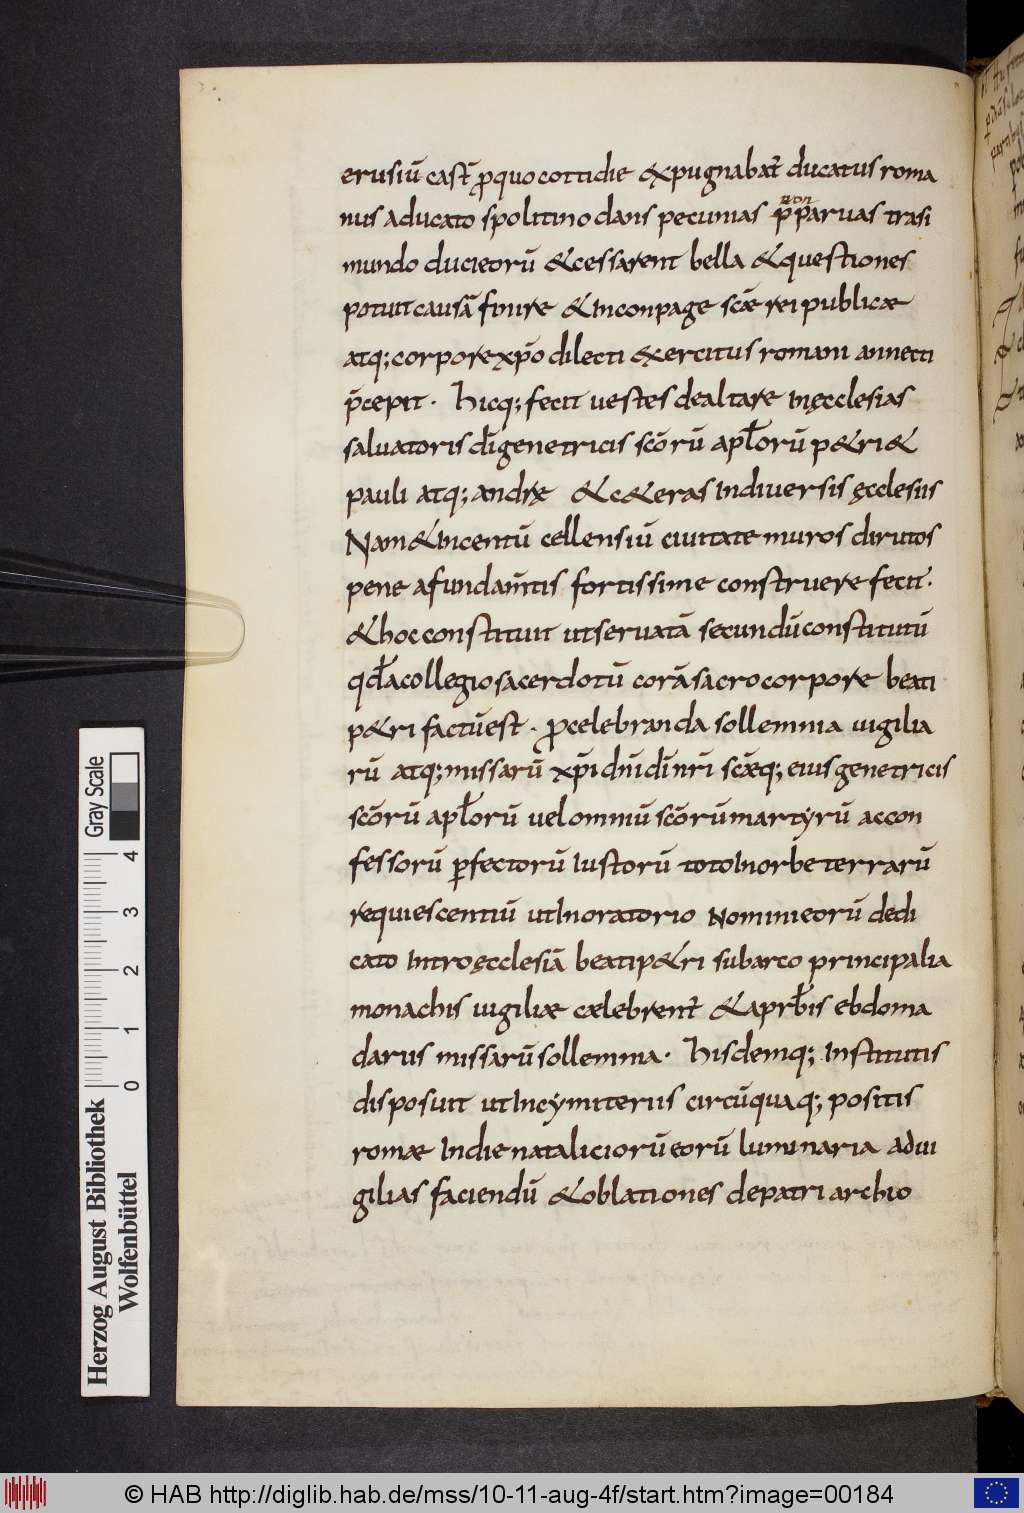 erusiū cast̄ ꝓquo cottidie expugnabat̄ ducatus roma
nus aducato spolitino dans pecunias p̄ paruas trasi
non
mundo ducieorū &cessarent bella &questiones
potuit causā finire &inconpage scǣ rei publicæ
atq; corpore xp̄o dilecti exercitus romani annecti
p̄cepit · hicq; fecit uestes dealtare inęcclesias
saluatoris dīgenetricis scōrū apl̄orū p&ri &
pauli atq; andrę &c&eras indiuersis ęcclesiis
Nam&incentū cellensiū ciuitate muros dirutos
pene afundam̄tis fortissime construere fecit ·
&hoc constituit utseruatā secundū constitutū
qd̄acollegio sacerdotū corā sacrocorpore beati
p&ri factūest · ꝓcelebranda sollemnia uigilia
rū atq; missarū xp̄i dn̄i dī nr̄i scǣq; eius genetricis
scōrū apl̄orū uel omniū scōrū martyrū accon
fessorū ꝑfectorū iustorū toto inorbe terrarū
requiescentiū utinoratorio nomineorū dedi
cato introęcclesiā beatip&ri subarco principalia
monachis uigiliæ cælebrent̄ &aprb̄is ebdoma
darus missarū sollemnia · hisdemq; institutis
disposuit utincymiteriis circūquaq; positis
romæ indie nataliciorū eorū luminaria aduı
gilias faciendū &oblationes depatri archio
Gray Scale
4
3
2
1
0
Herzog August Bibliothek
Wolfenbüttel
© HAB http://diglib.hab.de/mss/10-11-aug-4f/start.htm?image=00184